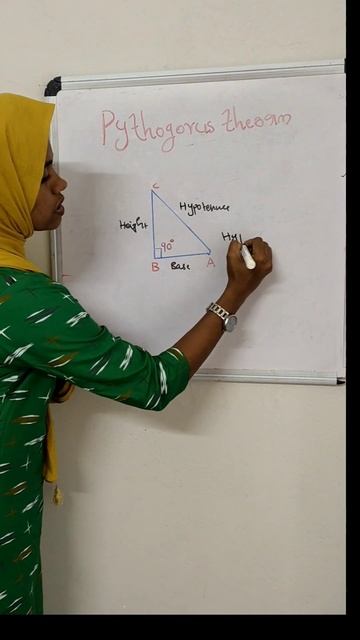 Pythogorus theorm
C
Hypotenuce
Height
Hy
90°
B
Base
A